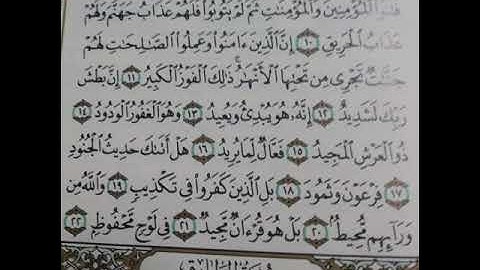 فَتَنُوا۟ ٱلْمُؤْمِنِينَ وَٱلْمُؤْمِنَـٰتِ ثُمَّ لَمْ يَتُوبُوا۟ فَلَهُمْ عَذَابُ جَهَنَّمَ وَلَهُمْ
عَذَابُ ٱلْحَرِيقِ ١٠ إِنَّ ٱلَّذِينَ ءَامَنُوا۟ وَعَمِلُوا۟ ٱلصَّـٰلِحَـٰتِ لَهُمْ
جَنَّـٰتٌ تَجْرِى مِن تَحْتِهَا ٱلْأَنْهَـٰرُ ذَٰلِكَ ٱلْفَوْزُ ٱلْكَبِيرُ ١١ إِنَّ بَطْشَ
رَبِّكَ لَشَدِيدٌ ١٢ إِنَّهُۥ هُوَ يُبْدِئُ وَيُعِيدُ ١٣ وَهُوَ ٱلْغَفُورُ ٱلْوَدُودُ ١٤
ذُو ٱلْعَرْشِ ٱلْمَجِيدُ ١٥ فَعَّالٌ لِّمَا يُرِيدُ ١٦ هَلْ أَتَىٰكَ حَدِيثُ ٱلْجُنُودِ
١٧ فِرْعَوْنَ وَثَمُودَ ١٨ بَلِ ٱلَّذِينَ كَفَرُوا۟ فِى تَكْذِيبٍ ١٩ وَٱللَّهُ مِن
وَرَآئِهِم مُّحِيطٌۢ ٢٠ بَلْ هُوَ قُرْءَانٌ مَّجِيدٌ ٢١ فِى لَوْحٍ مَّحْفُوظٍۭ ٢٢